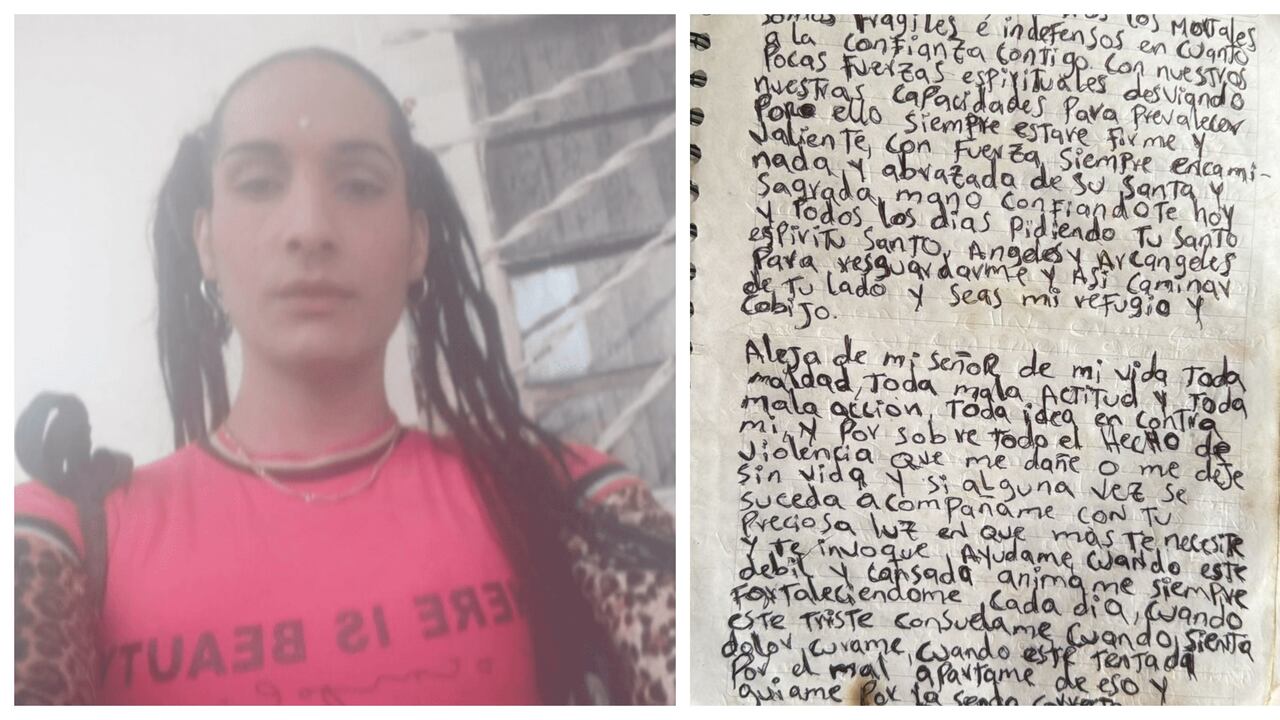 HERE IS BEAUTY
somos fragiles é indefensos los Mortales
a la confianza contigo. con nuestros en cuanto
Pocas fuerzas espirituales desviando
nuestras capacidades para prevalecer
Por ello siempre estare firme y
valiente, con fuerza siempre encami-
nada y abrazada de su santa y
sagrada mano confiandote hoy
y todos los dias pidiendo tu santo
espiritu santo, Angeles y Arcangeles
para resguardarme y Asi caminar
de tu lado y seas mi refugio y
Cobijo.
Aleja de mi señoR de mi vida toda
maldad, toda mala Actitud y toda
mala accion, toda idea en contra
mi, y por sobre todo el Hecho de
violencia que me dañe o me deje
sin vida y si alguna vez se
suceda acompañame con tu
preciosa luz en que mas te necesite
y te invoque, Ayudame cuando este
debil y cansada animame siempre
fortaleciendome cada dia, cuando
este triste consuelame cuando sienta
dolor curame, cuando este tentada
por el mal apartame de eso y
guiame por la senda correcta